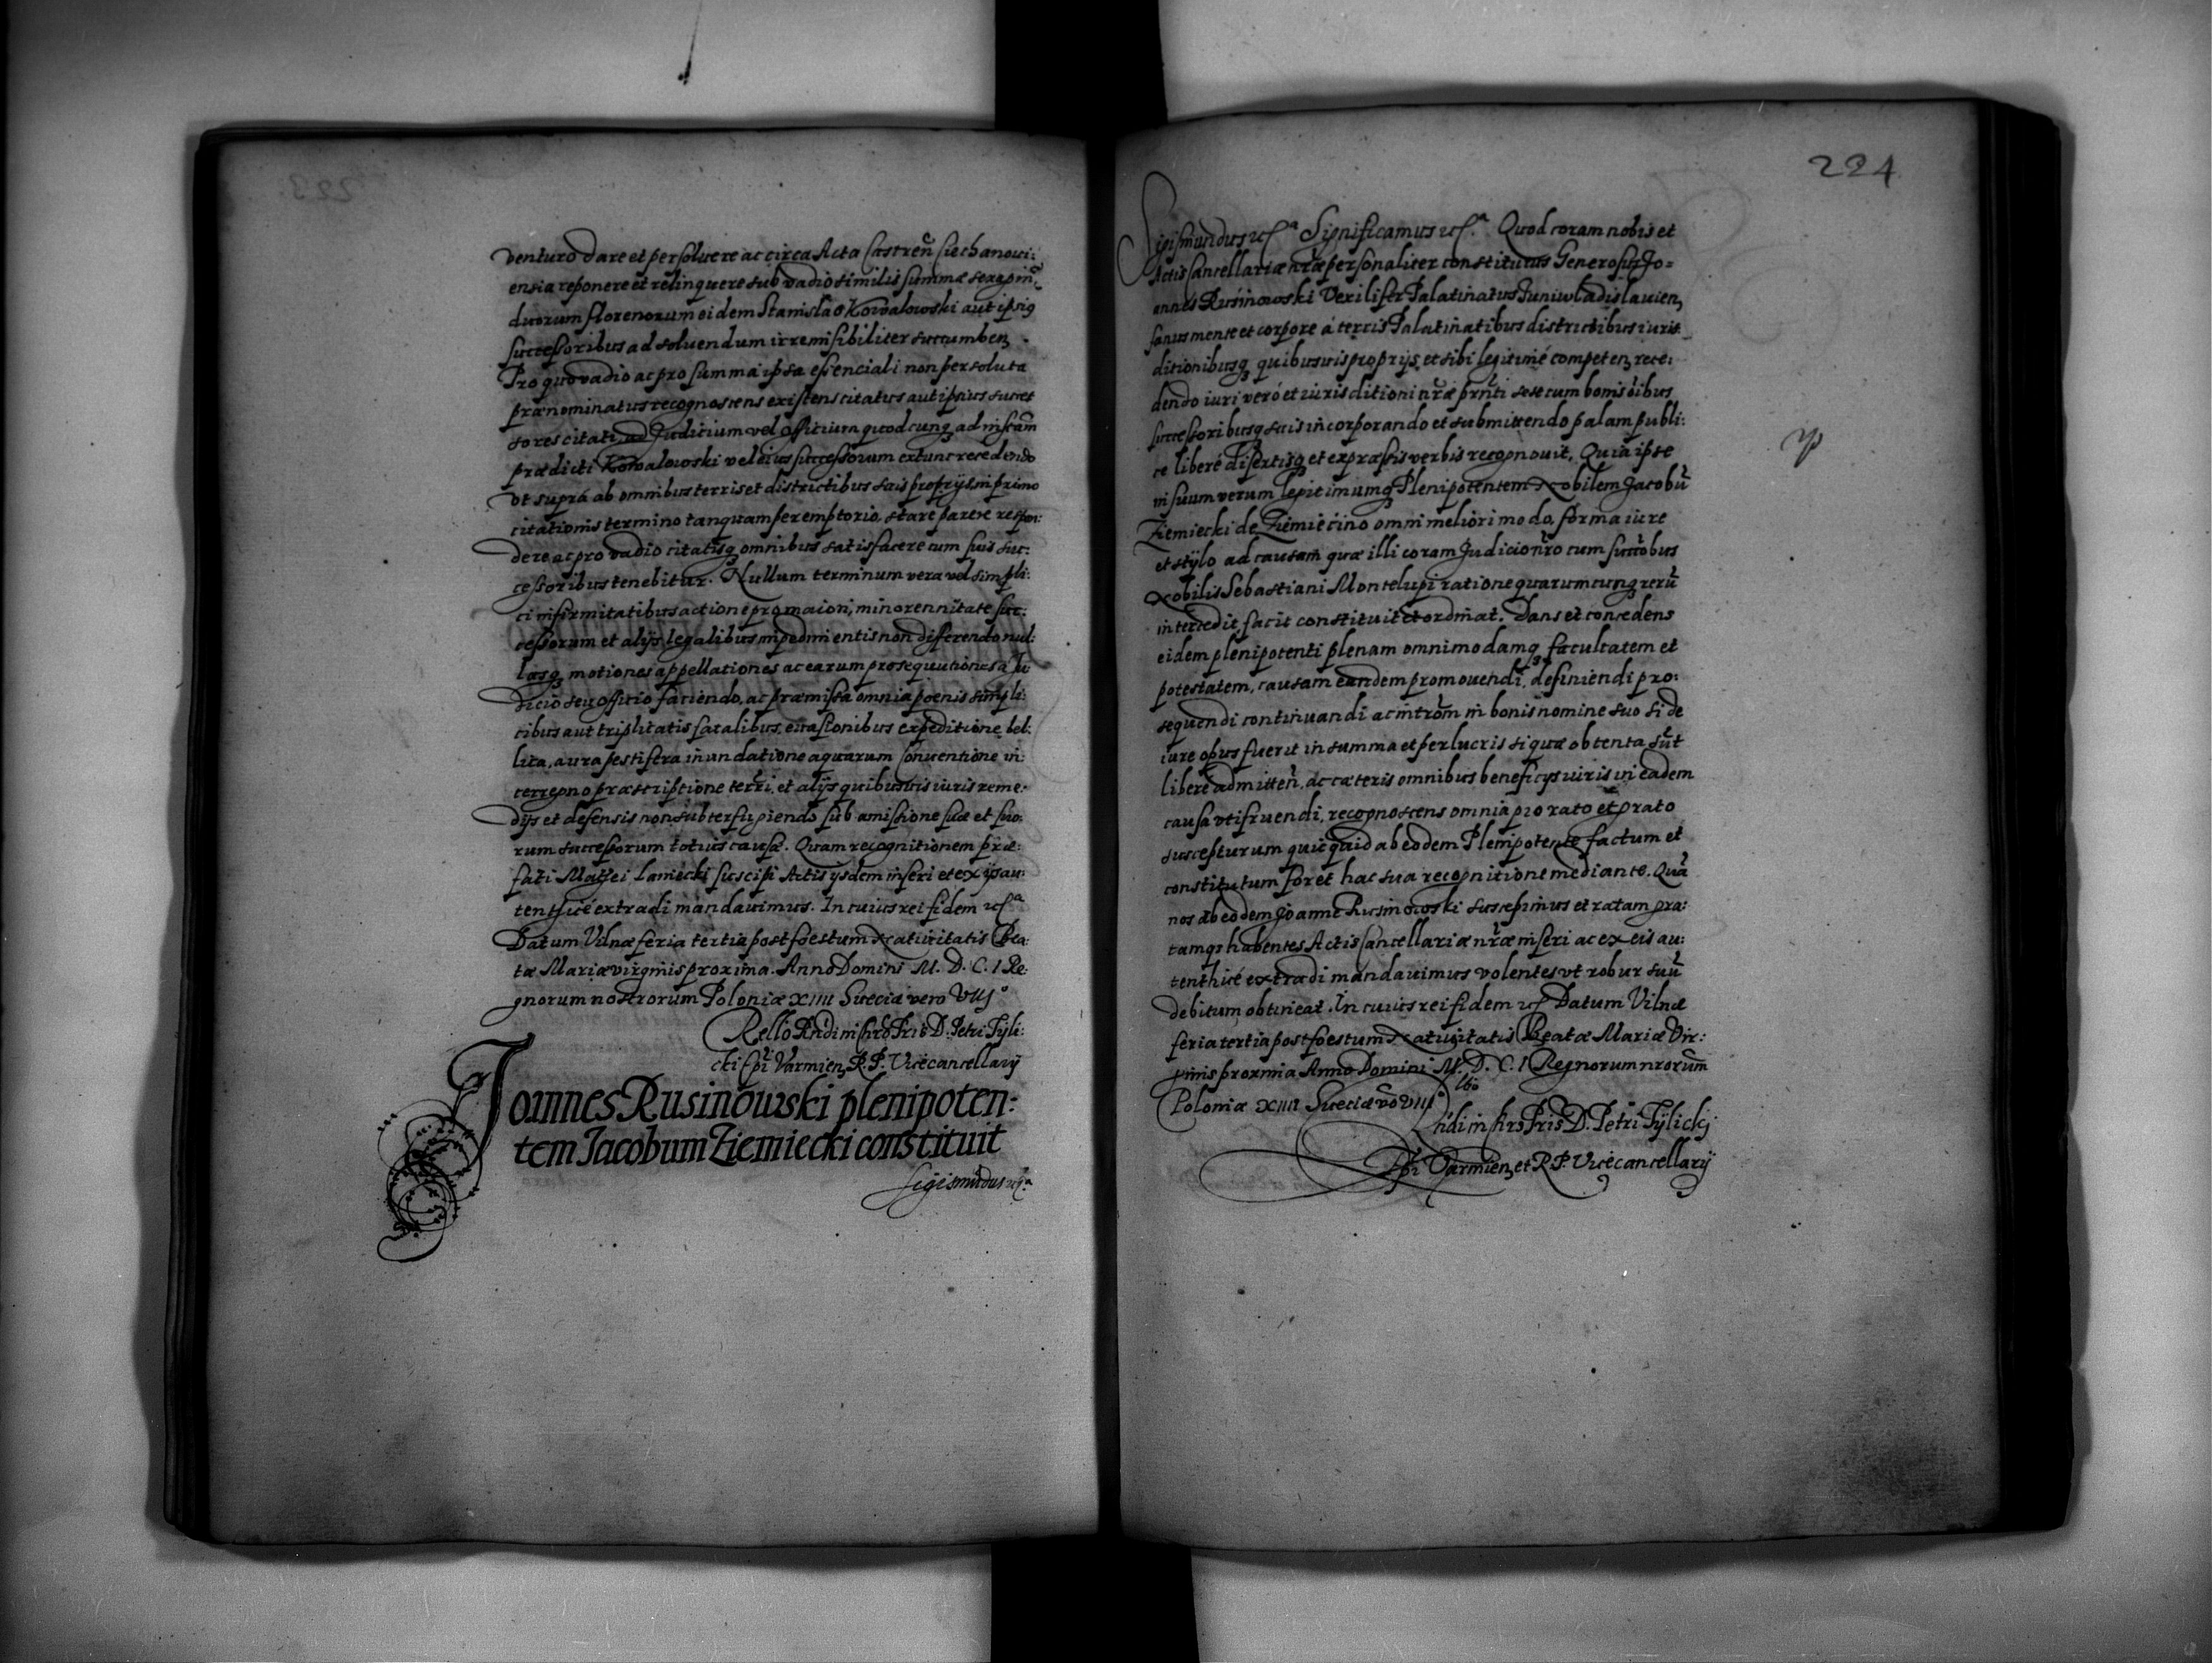 venturo dare et persoluere ac circa Acta Castren̄ Ciechanoui:
ensia reponere et relinquere sub vadio similis summæ
duorum florenorum eidem Stanislao Kowalowski aut ipsiq
successoribus ad soluendum irremisibiliter succumben
Pro quo vadio ac pro summa ipsa essenciali non persoluta
prænominatus recognoscens existens citatus aut ipsius succes
sores citati, ad Judicium vel officium quodcunq ad instam
prædicti Kowalowski vel eius successorum extunc recedendo
vt supra ab omnibus terris et districtibus suis proprys in primo
citationis termino tanquam peremptorio, stare parere respon:
dere ac pro vadio citatisq omnibus satisfacere cum suis suc:
cessoribus tenebitur. Nullum terminum vera vel simpli:
ci infirmitatibus actione pro maiori, minorennitate suc:
cessorum et alijs legalibus impedimentis non differendo nul:
lasq motiones appellationes ac earum prosequutiones a Ju
dicio seu officio faciendo, ac præmissa omnia poenis simpli:
cibus aut triplitatis fatalibus, euasionibus expeditione bel:
lica, aura pestifera inundatione aquarum conuentione in:
terregno præscriptione terri, et alijs quibusuis iuris reme:
dijs et defensis non subterfugiendo sub amissione suæ et suo:
rum successorum totius causæ. Quam recognitionem præ:
fati Mattei Laniecki suscipi Actis ijsdem inseri et ex ijs au:
tenthicé extradi mandauimus. In cuius rei fidem etc.a
Datum Vilnæ feria tertia post foestum Natiuitatis Bea:
tæ Mariæ virginis proxima. Anno Domini M. D. C. I Re:
gnorum nostrorum Poloniæ XIIII Sueciæ vero VIIJ°
Rello Rndi in Chrō Pris D. Petri Tÿli:
cki Ep̄i Varmien R. P. Vicecancellarij
Joannes Rusinowski plenipoten:
tem Jacobum Ziemiecki constituit
Sigismūdus etc.a
224
Sigismundus etc.a Significamus etc.a Quod coram nobis et
Actis Cancellariæ nræ personaliter constitutus Generosus Jo=
annes Rusinowski Vexilifer Palatinatus Juniwladislauien,
sanus mente et corpore á terris Palatinatibus districtibus iuris
ditionibusq quibusuis proprijs et sibi legitimé competen, rece:
dendo iuri veró et iurisditioni nræ prnti sese cum bonis oibus
successoribusq suis incorporando et submittendo palam publi:
ce liberé disertisq et expræssis verbis recognouit. Quia ipse
in suum verum legitimumq Plenipotentem Nobilem Jacobū
Ziemiecki de Ziemiecino omni meliori modo, forma iure
et stÿlo ad causam quæ illi coram Judicio nro cum succobus
Nobilis Sebastiani Montelupi ratione quarumcunq rerū
intercedit facit constituit et ordinat. Dans et concedens
eidem plenipotenti plenam omnimodamq facultatem et
potestatem, causam eandem promouendi, definiendi pro:
sequendi continuandi ac introm in bonis nomine suo si de
iure opus fuerit in summa et per lucris si quæ obtenta sūt
liberé admitten, ac cæteris omnibus beneficijs uiris in eadem
causa vti fruendi, recognoscens omnia pro rato et grato
suscepturum quicquid ab eodem Plenipotente factum et
constitutum foret hac sua recognitione mediante. Quā
nos ab eodem Joanne Rusinowski suscepimus et ratam gra:
tamqs habentes Actis Cancellariæ nræ inseri ac ex eis au:
tenthicé extradi mandauimus volentes vt robur suū
debitum obtineat. In cuius rei fidem etc. Datum Vilnæ
feria tertia post foestum Natiuitatis Beatæ Mariæ Vir:
ginis proxima Anno Domini M. D. C. I Regnorum nrorum
Poloniæ XIIII Sueciæ vō VIII°
Rndi in Chrs Pris D. Petri Tÿlickj
Ep̄i Varmien, et R. P. Vicecancellarij